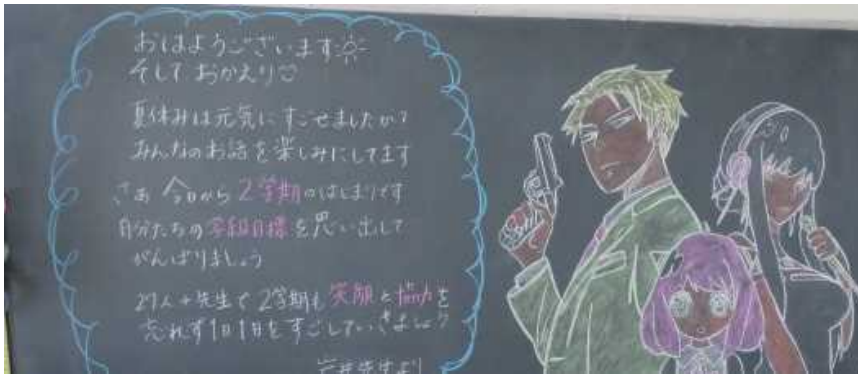 おはようございます
そして おかえり♡
夏休みは元気に すごせましたか?
みんなのお話を楽しみにしてます
さあ 今日から 2学期のはじまりです
自分たちの学級目標を思い出して
がんばりましょう
29人+先生で 2学期も 笑顔と協力を
忘れず1日1日をすごしていきましょう
岩井先生より